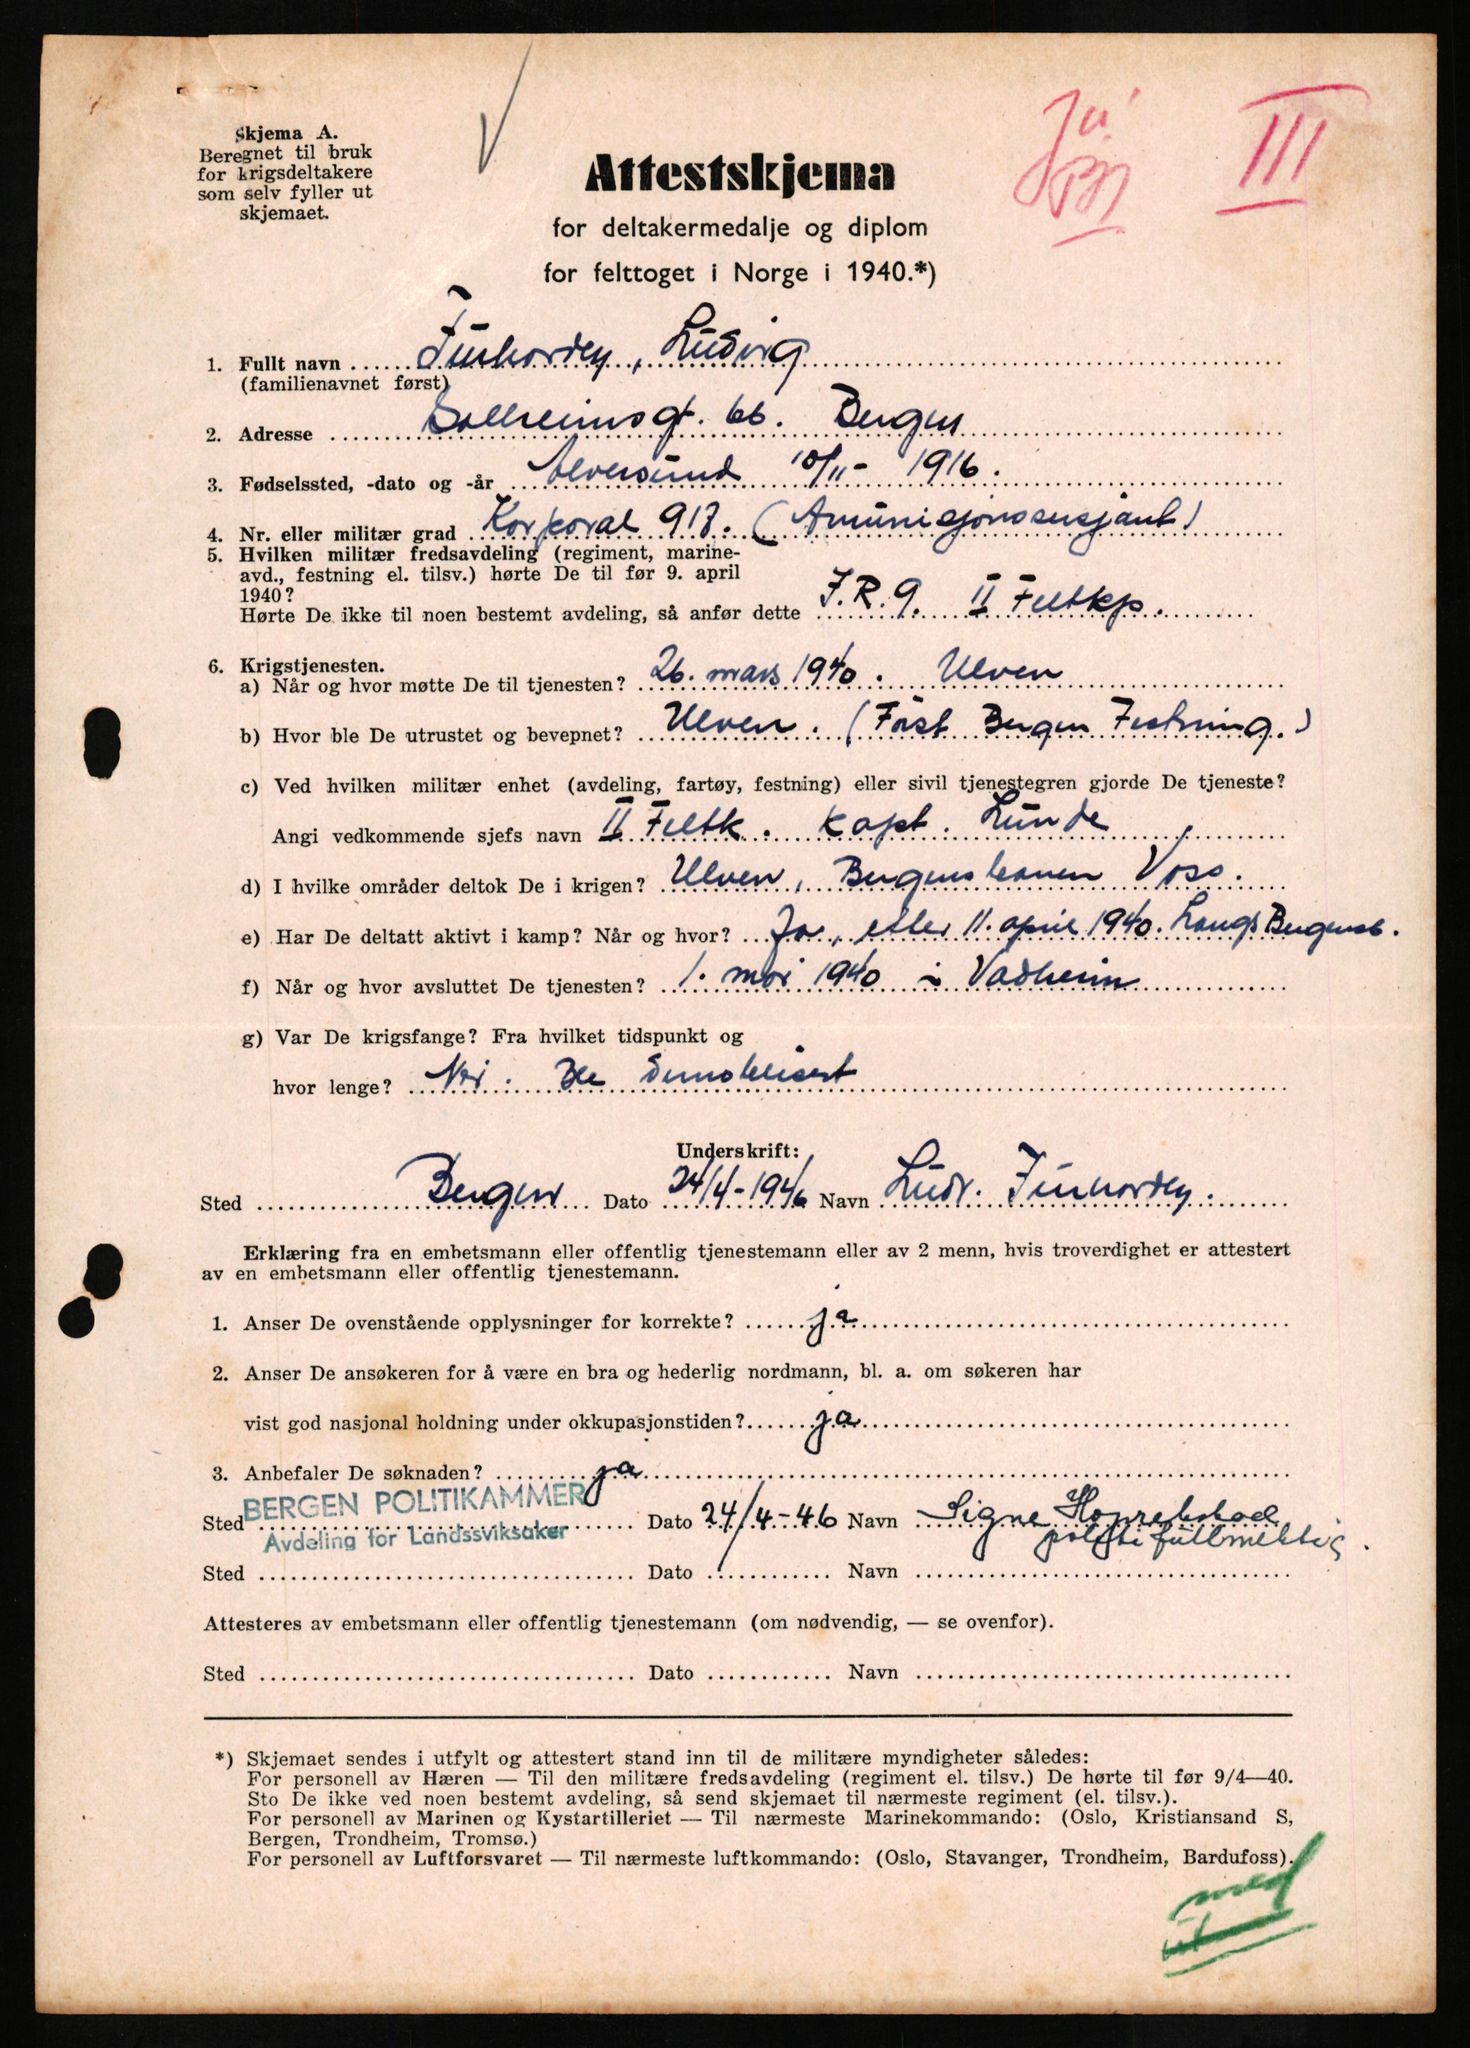 Skjema A.
Beregnet til bruk
for krigsdeltakere
som selv fyller ut
skjemaet.
Ja
III
Attestskjema
for deltakermedalje og diplom
for felttoget i Norge i 1940.*)
1. Fullt navn Ludvig
(familienavnet først)
2. Adresse Solheimsgt. 66. Bergen
3. Fødselssted, -dato og -år Alversund 10/11- 1916.
4. Nr. eller militær grad Korporal 917. (Amunisjonssersjant)
5. Hvilken militær fredsavdeling (regiment, marine-
avd., festning el. tilsv.) hørte De til før 9. april
1940?
Hørte De ikke til noen bestemt avdeling, så anfør dette J.R.9. II Feltkp.
6. Krigstjenesten.
a) Når og hvor møtte De til tjenesten? 26. mars 1940. Ulven
b) Hvor ble De utrustet og bevepnet? Ulven. (Først Bergen Festning.)
c) Ved hvilken militær enhet (avdeling, fartøy, festning) eller sivil tjenestegren gjorde De tjeneste?
Angi vedkommende sjefs navn II Feltk. Kapt. Lunde
d) I hvilke områder deltok De i krigen? Ulven, Bergensbanen Voss.
e) Har De deltatt aktivt i kamp? Når og hvor? Ja, etter 11. april 1940. Langs Bergensb.
f) Når og hvor avsluttet De tjenesten? 1. mai 1940 i Vadheim
g) Var De krigsfange? Fra hvilket tidspunkt og
hvor lenge? Nei. Ble demobilisert
Underskrift:
Sted Bergen Dato 24/4-1946 Navn Ludv.
Erklæring fra en embetsmann eller offentlig tjenestemann eller av 2 menn, hvis troverdighet er attestert
av en embetsmann eller offentlig tjenestemann.
1. Anser De ovenstående opplysninger for korrekte? ja
2. Anser De ansøkeren for å være en bra og hederlig nordmann, bl. a. om søkeren har
vist god nasjonal holdning under okkupasjonstiden? ja
3. Anbefaler De søknaden? ja
BERGEN POLITIKAMMER
Sted Dato 24/4-46 Navn Signe
Avdeling for Landssviksaker politifullmektig.
Sted Dato Navn
Attesteres av embetsmann eller offentlig tjenestemann (om nødvendig, — se ovenfor).
Sted Dato Navn
*) Skjemaet sendes i utfylt og attestert stand inn til de militære myndigheter således:
For personell av Hæren — Til den militære fredsavdeling (regiment el. tilsv.) De hørte til før 9/4—40.
Sto De ikke ved noen bestemt avdeling, så send skjemaet til nærmeste regiment (el. tilsv.).
For personell av Marinen og Kystartilleriet — Til nærmeste Marinekommando: (Oslo, Kristiansand S,
Bergen, Trondheim, Tromsø.)
For personell av Luftforsvaret — Til nærmeste luftkommando: (Oslo, Stavanger, Trondheim, Bardufoss).
med